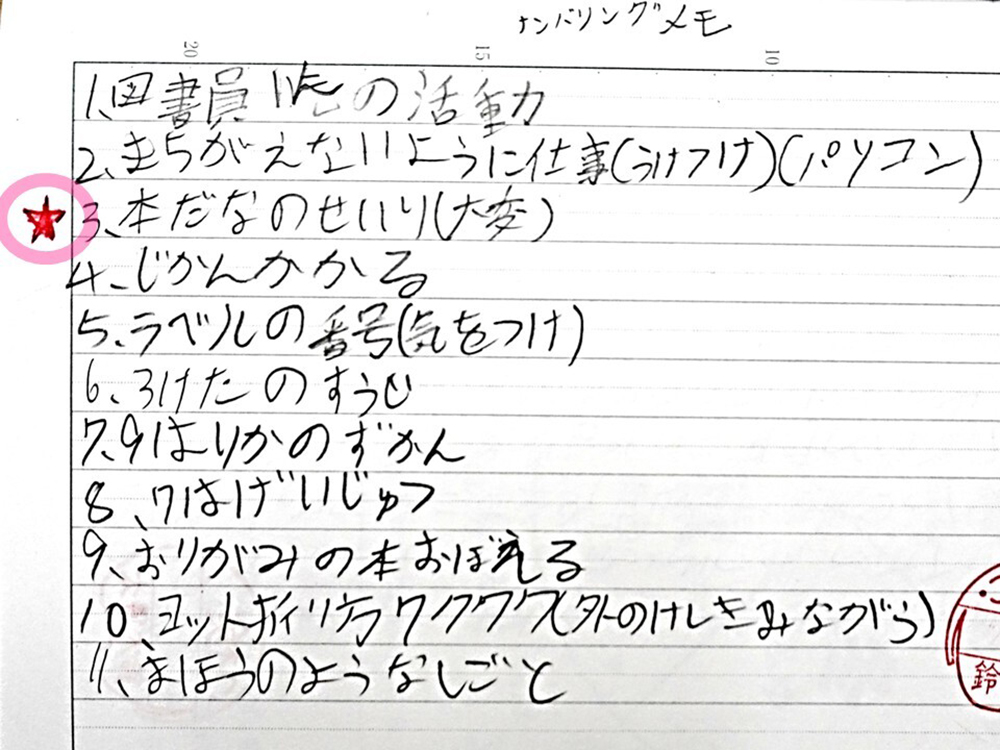 ナンバリングメモ
20 15 10
1、図書員の活動
2、まちがえないように仕事(うけつけ)(パソコン)
3、本だなのせいり(大変)
4、じかんかかる
5、ラベルの番号(気をつけ)
6、3けたのすうじ
7、9はりかのずかん
8、7はげいじゅつ
9、おりがみの本おぼえる
10、ヨットワクワク(外のけしきみながら)
11、まほうのようなしごと
鈴